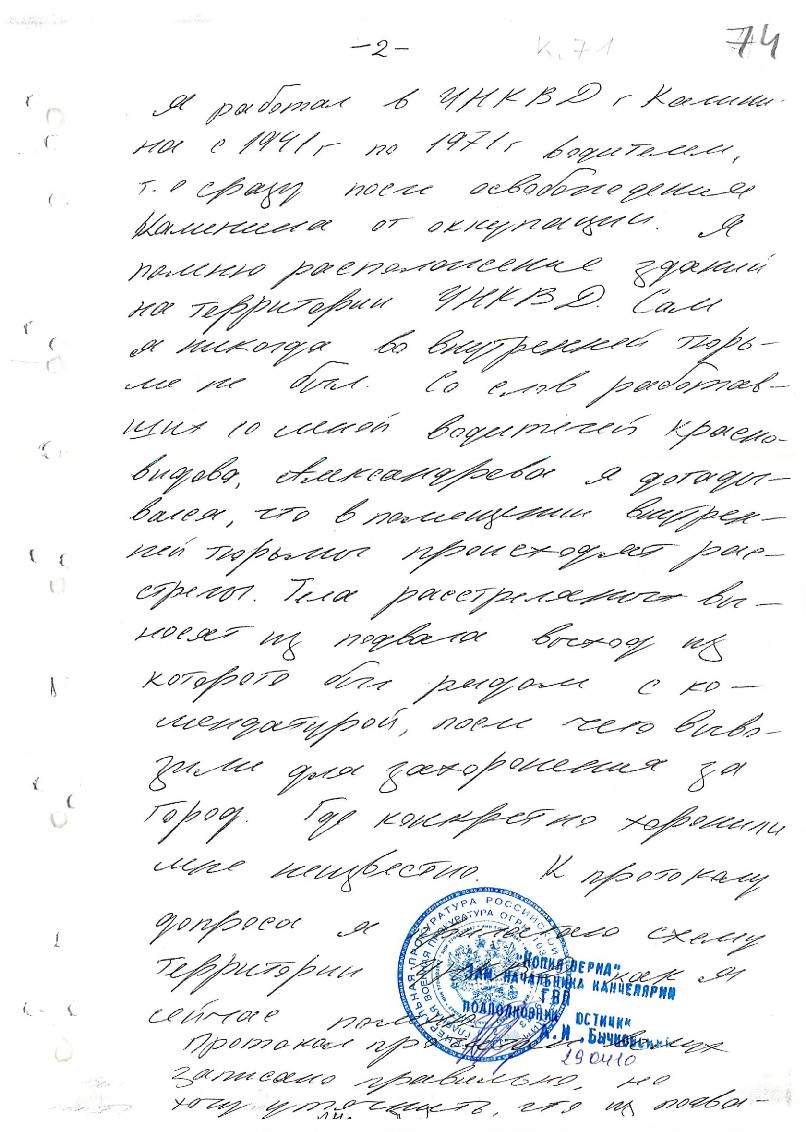 -2-
К. 71
74
Я работал в УНКВД г Калини-
на с 1941г по 1971г водителем,
т.е сразу после освобождения
Калинина от оккупации. Я
помню расположение зданий
на территории УНКВД. Сам
я никогда во внутренней тюрь-
ме не был. Со слов работав-
ших со мной водителей Красно-
видова, Александрова я догады-
вался, что в помещении внутрен-
ней тюрьмы происходят рас-
стрелы. Тела расстреляных вы-
носят из подвала выход из
которого был рядом с ко-
мендатурой, после чего выво-
зили для захоронения за
город. Где конкретно хоронили
мне неизвестно. К протоколу
допроса я прилагаю схему
территории как я
сейчас помню
Протокол
записано правильно, но
хочу уточнить, что из подва-
"КОПИЯ ВЕРНА"
ЗАМ НАЧАЛЬНИКА КАНЦЕЛЯРИИ
ГВП
ПОДПОЛКОВНИК ЮСТИЦИИ
А.И.
290410
ГЛАВНАЯ ВОЕННАЯ ПРОКУРАТУРА
ПРОКУРАТУРА РОССИЙСКОЙ